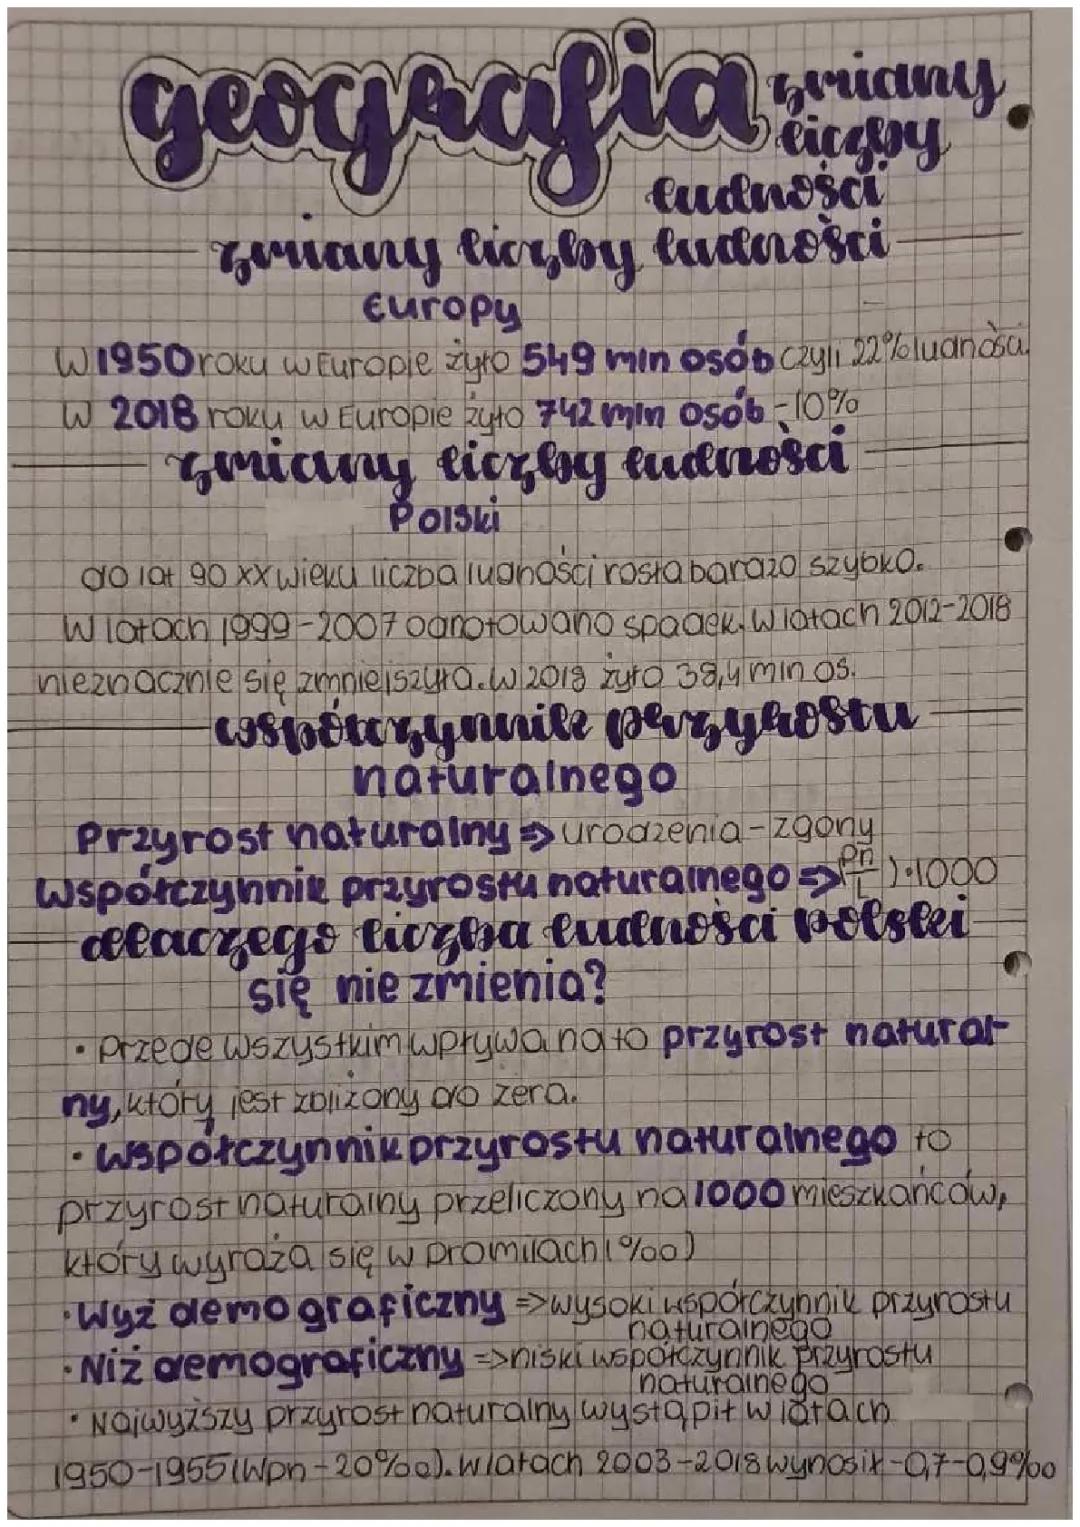 geografia zmiany
liczby
ludności
zmiany liczby ludności
Europy
W 1950 roku w Europie żyło 549 mln osób czyli 22% ludności.
W 2018 roku w Europie żyło 742 mln osób - 10%
zmiany liczby ludności
Polski
do lat 90 xx wieku liczba ludności rosła bardzo szybko.
W latach 1999-2007 odnotowano spadek. W latach 2012-2018
nieznacznie się zmniejszyła. W 2018 żyło 38,4 mln os.
współczynnik przyrostu
naturalnego
Przyrost naturalny => urodzenia - zgony
Współczynnik przyrostu naturalnego => (Pn/L)·1000
dlaczego liczba ludności polski
się nie zmienia?
• Przede wszystkim wpływa na to przyrost natural-
ny, który jest zbliżony do zera.
• Współczynnik przyrostu naturalnego to
przyrost naturalny przeliczony na 1000 mieszkańców,
który wyraża się w promilach (‰)
• Wyż demograficzny => wysoki współczynnik przyrostu
naturalnego
• Niż demograficzny => niski współczynnik przyrostu
naturalnego
• Najwyższy przyrost naturalny wystąpił w latach
1950-1955 (Wpn - 20‰). w latach 2003-2018 wynosił -0,7-0,9‰